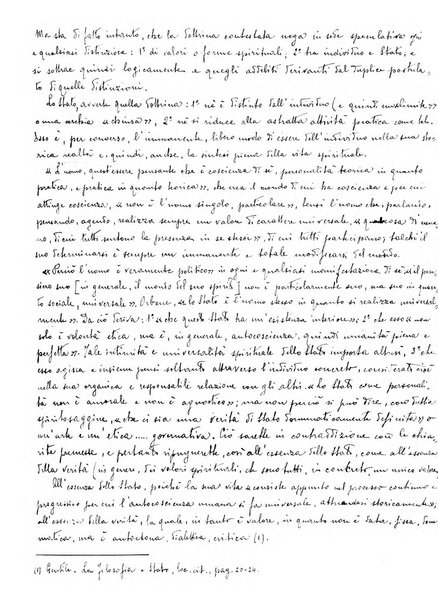 Ma sta di fatto intanto, che la dottrina contestata nega in sede speculativa ogni
e qualsiasi distinzione: 1° di valori o forme spirituali; 2° tra individuo e Stato; e
si sottrae quindi logicamente a quegli addebiti derivanti dal duplice postula-
to di quelle distinzioni.
Lo Stato, avverte quella dottrina: 1° nè è distinto dall'individuo (e quindi
o una anzia «chiusa»), 2° nè si riduce alla astratta attività pratica come tale.
Esso è, per converso, l'immanente, libero modo di essere dell'individuo nella sua sto-
rica realtà e, quindi, anche, la sintesi piena della vita spirituale.
«L'uomo, quest'essere pensante che è coscienza di sè, personalità teorica in quanto
pratica, e pratica in quanto teorica», che crea il mondo di cui ha coscienza e per cui
attinge coscienza, «non è l'uomo singolo, particolare», bensì l'uomo che, parlando,
pensando, agendo, realizza sempre un valore di carattere universale, «qualcosa di uma-
no, di cui tutti sentono la presenza in se stessi», di cui tutti partecipano; talchè il
suo determinarsi è sempre un immanente e totale modificarsi del mondo.
«Perciò l'uomo è veramente politico» in ogni e qualsiasi manifestazione di sè «il pen-
siero suo [in generale, il mondo del suo spirito] non è particolarmente suo, ma suo in quan-
to sociale, universale». Orbene, «lo Stato è l'uomo stesso in quanto si realizza universal-
mente». Da ciò deriva: 1° «che questo Stato ha un'esistenza interiore»; 2° che esso «non
solo è volontà etica, ma è, in generale, autocoscienza, quindi umanità piena e
perfetta». Tale intimità e universalità spirituale dello Stato importa altresì, 3° che
esso agisca e insieme pensi soltanto attraverso l'individuo concreto, considerato cioè
nella sua organica e responsabile relazione con gli altri. «Lo Stato come personali-
tà non è amorale e non è agnostico»; ma non perciò si può dire, con dotta
spiritosaggine, «che ci sia una verità di Stato dommaticamente definita» o
un'arte e un'etica.... governativa. Ciò sarebbe in contraddizione con le chia-
rite premesse, e pertanto ripugnerebbe, così all'essenza dello Stato, come all'essenza
della verità (in genere, dei valori spirituali, che sono tutti, in concreto, un unico valore).
All'essenza dello Stato, poichè la sua vita «consiste appunto nel processo continuo e
progressivo per cui l'autocoscienza umana si fa universale, attuandosi storicamente»;
all'essenza della verità, la quale, in tanto è valore, in quanto non è data, fissa, dom-
matica, ma è autoctona, dialettica, critica (1).
(1) Gentile. La filosofia e Stato, loc. cit., pag. 20-24.